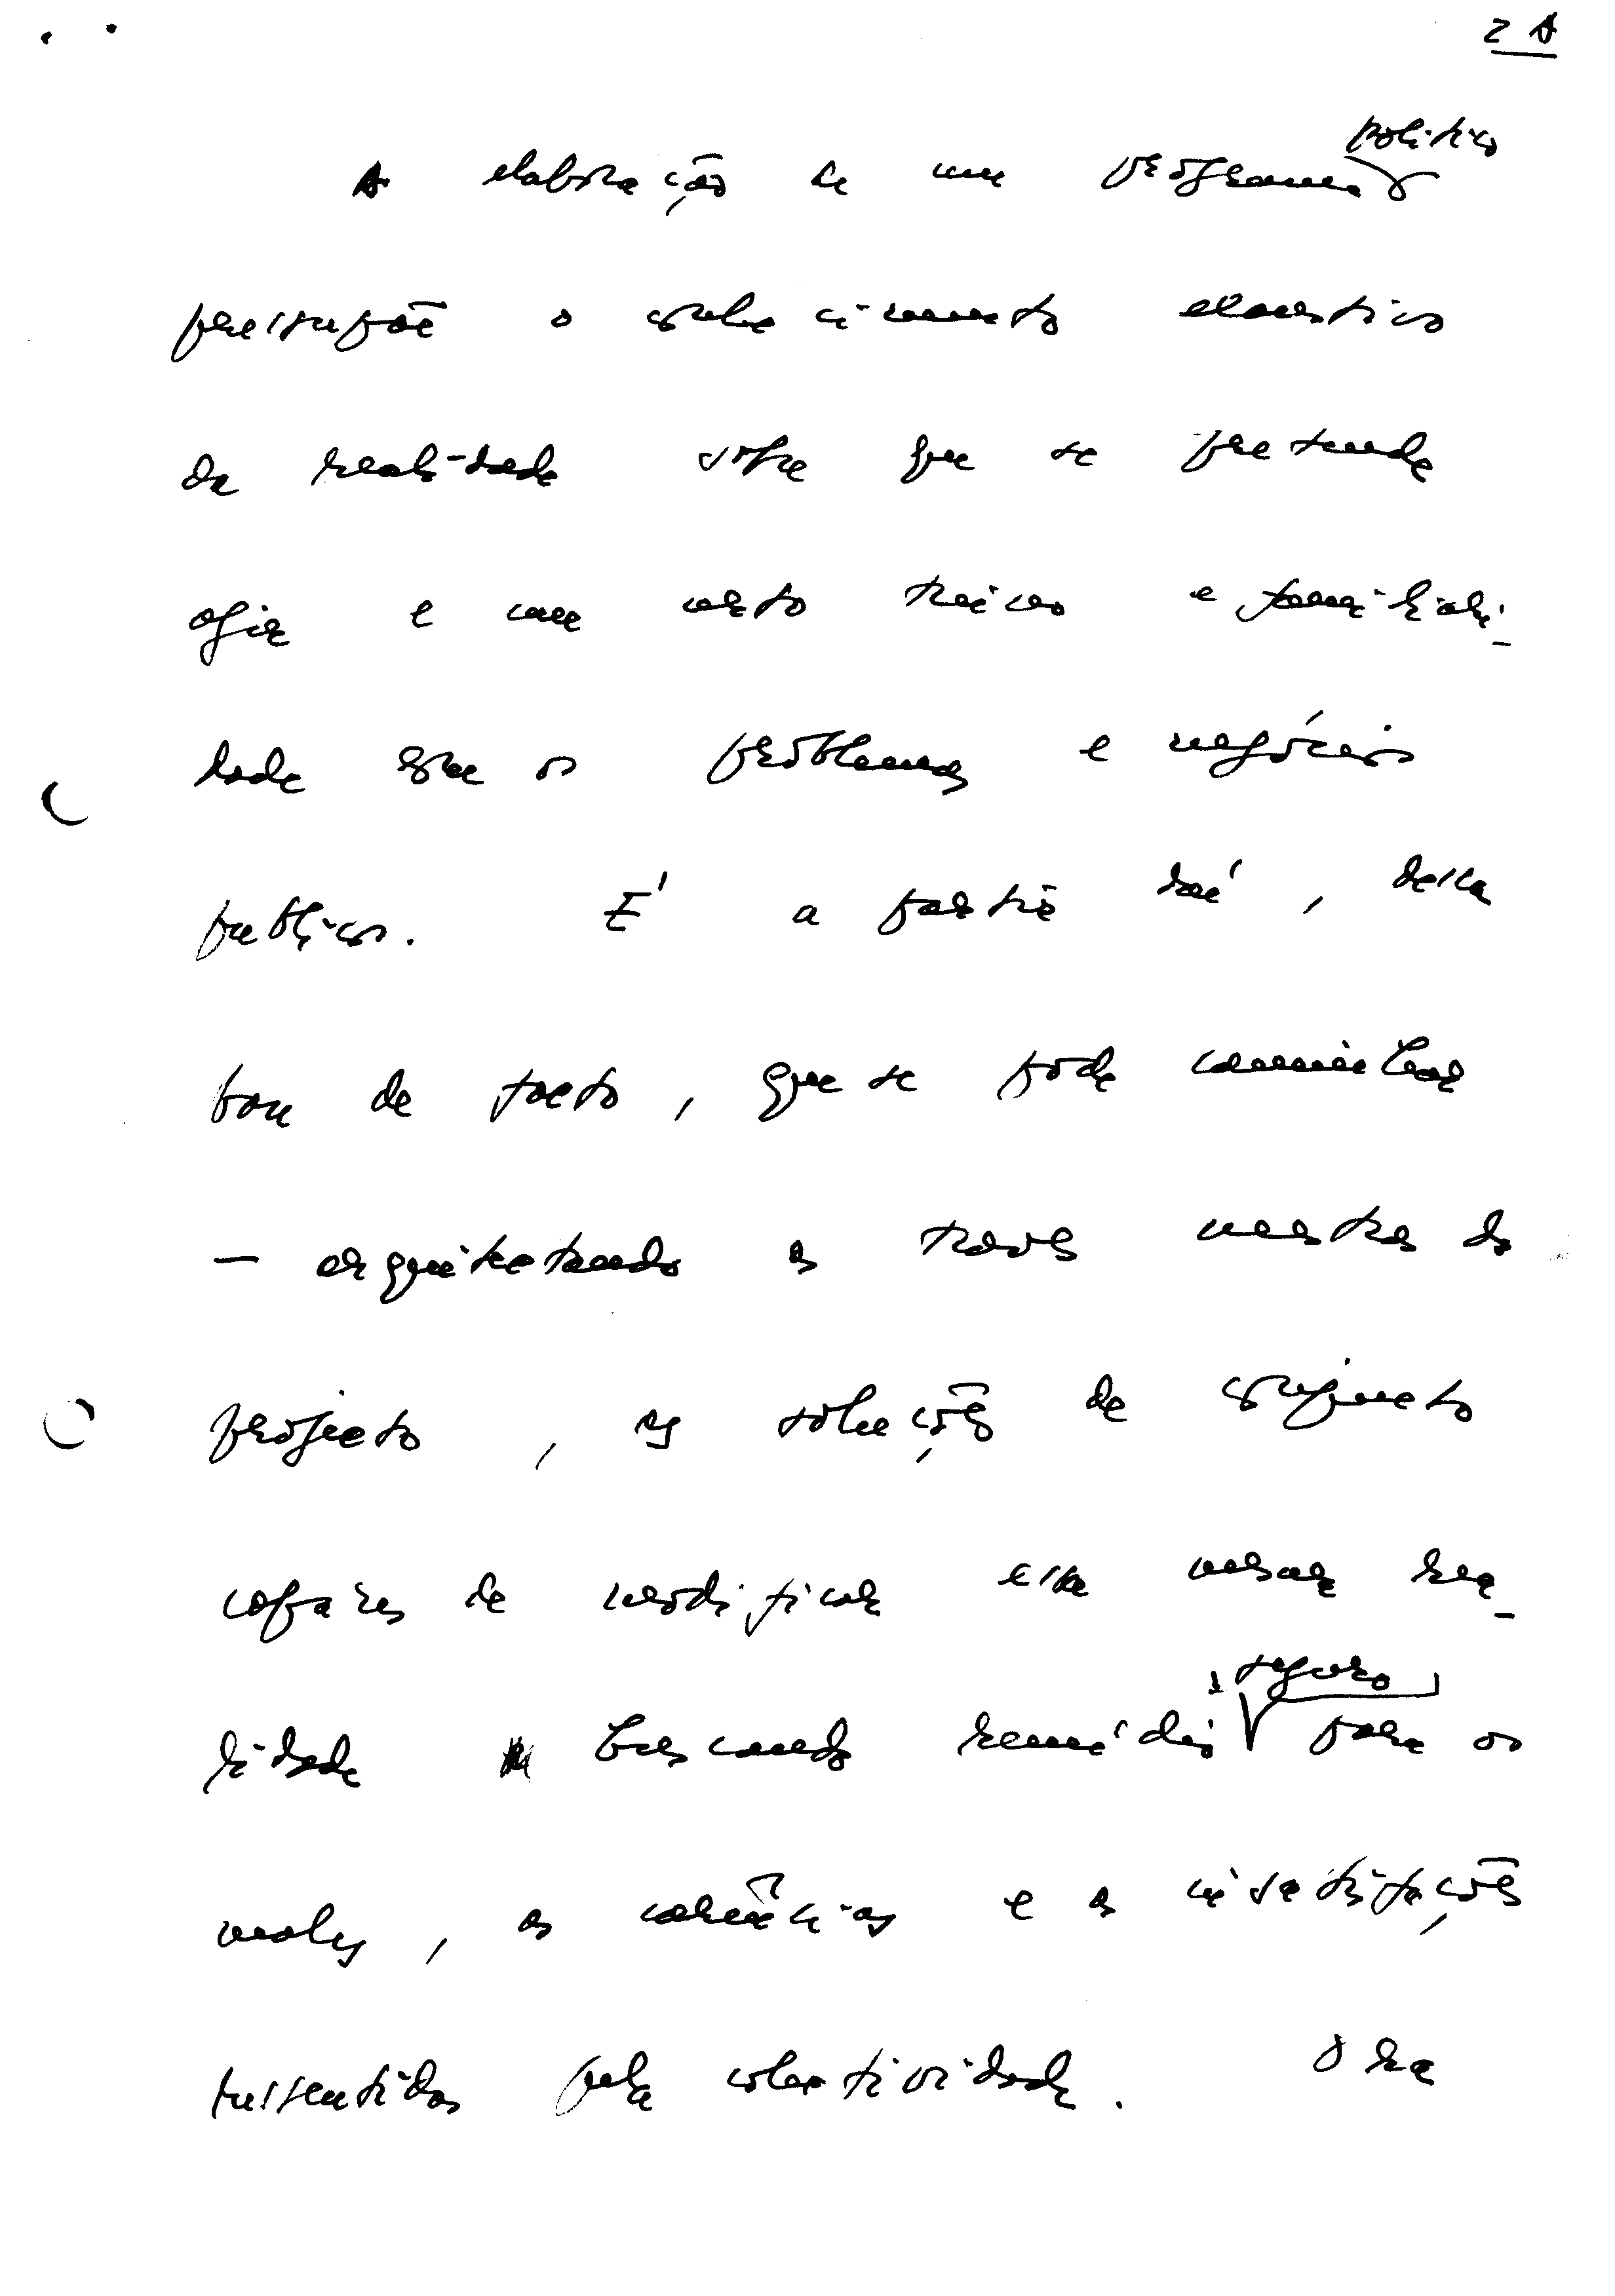 2 A
político
A elaboração de um programa
pressupõe o conhecimento exaustivo
da realidade sobre que se pretende
agir e um certo treino e familiari-
dade com os problemas e negócios
publicos. É a partir daí, dessa
base de facto, que se pode caminhar
— arquitetando as traves mestras do
projecto, as soluções de conjunto
capazes de modificar essa mesma rea-
seguros
lidade buscando remédios para os
males, as carências e as insatisfações
pressentidas pela colectividade. Ora